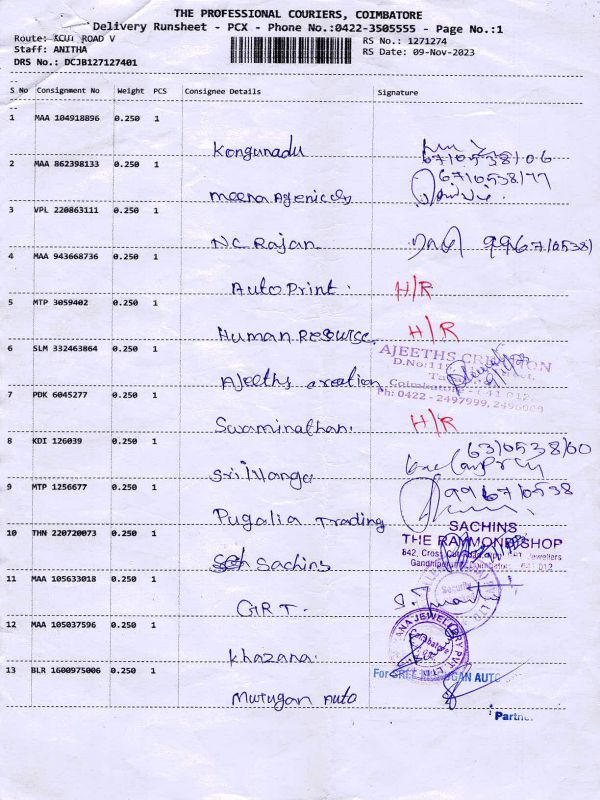 THE PROFESSIONAL COURIERS, COIMBATORE
Delivery Runsheet - PCX - Phone No.:0422-3505555 - Page No.:1
Route: ROAD V
RS No.: 1271274
Staff: ANITHA
RS Date: 09-Nov-2023
DRS No.: DCJB127127401
S No Consignment No Weight PCS Consignee Details Signature
1 MAA 104918896 0.250 1
Kongunadu
67/0538/06
2 MAA 862398133 0.250 1
67/0538/77
Meena Agenices
3 VPL 220863111 0.250 1
NC Rajan 9967/0538)
4 MAA 943668736 0.250 1
Auto Print. H/R
5 MTP 3059402 0.250 1
Human Resourse. H/R
6 SLM 332463864 0.250 1
AJEETHS CREATION
Ajeeths creation
Ph: 0422 - 2497999,
7 PDK 6045277 0.250 1
Swaminathan. H/R
8 KDI 126039 0.250 1
63/0538/60
Sri Ivanga
9 MTP 1256677 0.250 1
9967/0538
Pugalia Trading
10 THN 220720073 0.250 1
SACHINS
THE RAYMOND SHOP
Sachins
11 MAA 105633018 0.250 1
Security
GRT.
12 MAA 105037596 0.250 1
ANA JEWELLERY PVT LTD
Coimbatore
Khazana.
13 BLR 1600975006 0.250 1
For SREE MURUGAN AUTO
Murugan Auto
Partner